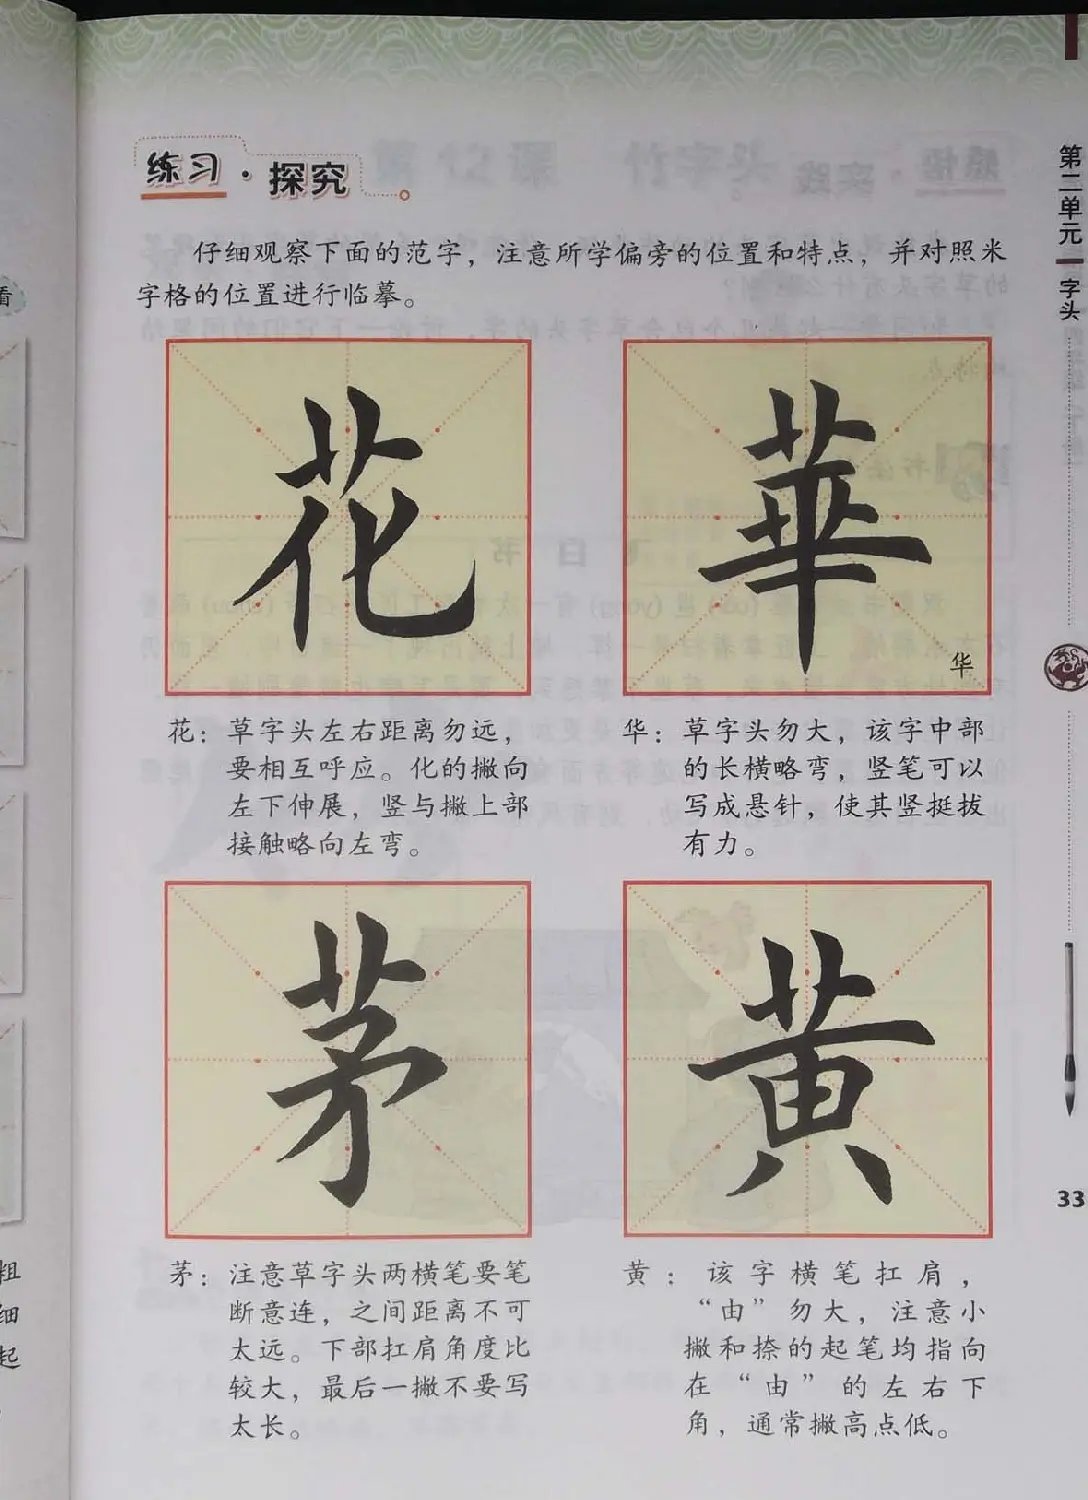 练习·探究
仔细观察下面的范字，注意所学偏旁的位置和特点，并对照米
字格的位置进行临摹。
花
華
华
花：草字头左右距离勿远，
要相互呼应。化的撇向
左下伸展，竖与撇上部
接触略向左弯。
华：草字头勿大，该字中部
的长横略弯，竖笔可以
写成悬针，使其竖挺拔
有力。
茅
黄
茅：注意草字头两横笔要笔
断意连，之间距离不可
太远。下部扛肩角度比
较大，最后一撇不要写
太长。
黄：该字横笔扛肩，
“由”勿大，注意小
撇和捺的起笔均指向
在“由”的左右下
角，通常撇高点低。
第二单元
字头
33
看
粗
细
起